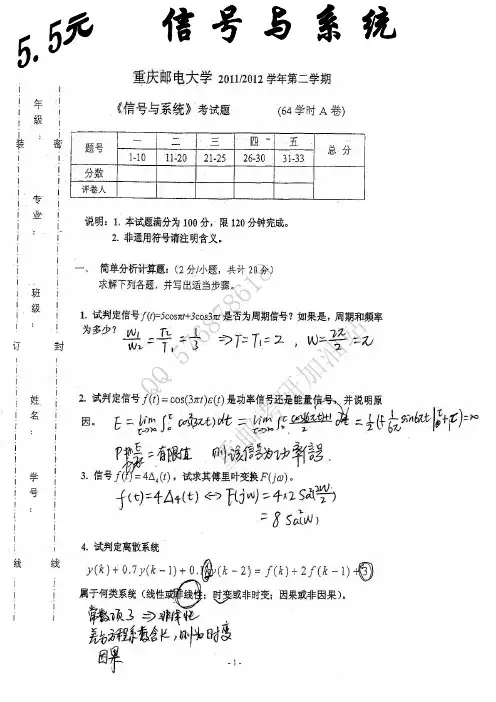 5.5元
信号与系统
重庆邮电大学 2011/2012 学年第二学期
《信号与系统》考试题 (64学时A卷)
题号 一 二 三 四 五 总分
1-10 11-20 21-25 26-30 31-33
分数
评卷人
年级:
专业:
班级:
姓名:
学号:
装 订 线
密 封 线
说明: 1. 本试题满分为100分,限120分钟完成。
2. 非通用符号请注明含义。
一、 简单分析计算题:(2分/小题,共计20分)
求解下列各题,并写出适当步骤。
1. 试判定信号f(t)=5cosπt+3cos3πt是否为周期信号?如果是,周期和频率
为多少? W₁/W₂ = T₂/T₁ = 1/3 ⇒ T=T₁=2 , W=2π/2=π
2. 试判定信号 f(t) = cos(3πt)ε(t) 是功率信号还是能量信号、并说明原
因。
= 有限值 则该信号为功率信号
3. 信号 f(t) = 4Δ₄(t) ,试求其傅里叶变换 F(jω)。
f(t)=4Δ₄(t) ⇔ F(jw)=4×2 Sa²(2W/2)
= 8 Sa²(W)
4. 试判定离散系统
y(k) + 0.7y(k−1) + 0.1ky(k−2) = f(k) + 2f(k−1) + 3
属于何类系统(线性或非线性;时变或非时变;因果或非因果)。
常数项3 ⇒ 非线性
差分方程系数含K,则为时变
因果
- 1 -